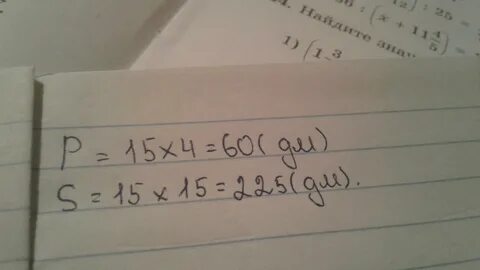 12) : 25 =
: (x + 11 4/5) =
24. Найдите знач
1) (1 3
P = 15×4 = 60 (дм)
S = 15 × 15 = 225 (дм).